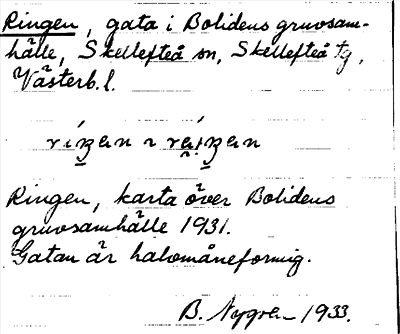 Ringen, gata i Bolidens gruvsam-
hälle, Skellefteå sn, Skellefteå tg,
Västerb. l.
Ringen, karta över Bolidens
gruvsamhälle 1931.
Gatan är halvmåneformig.
B. Nygren 1933.